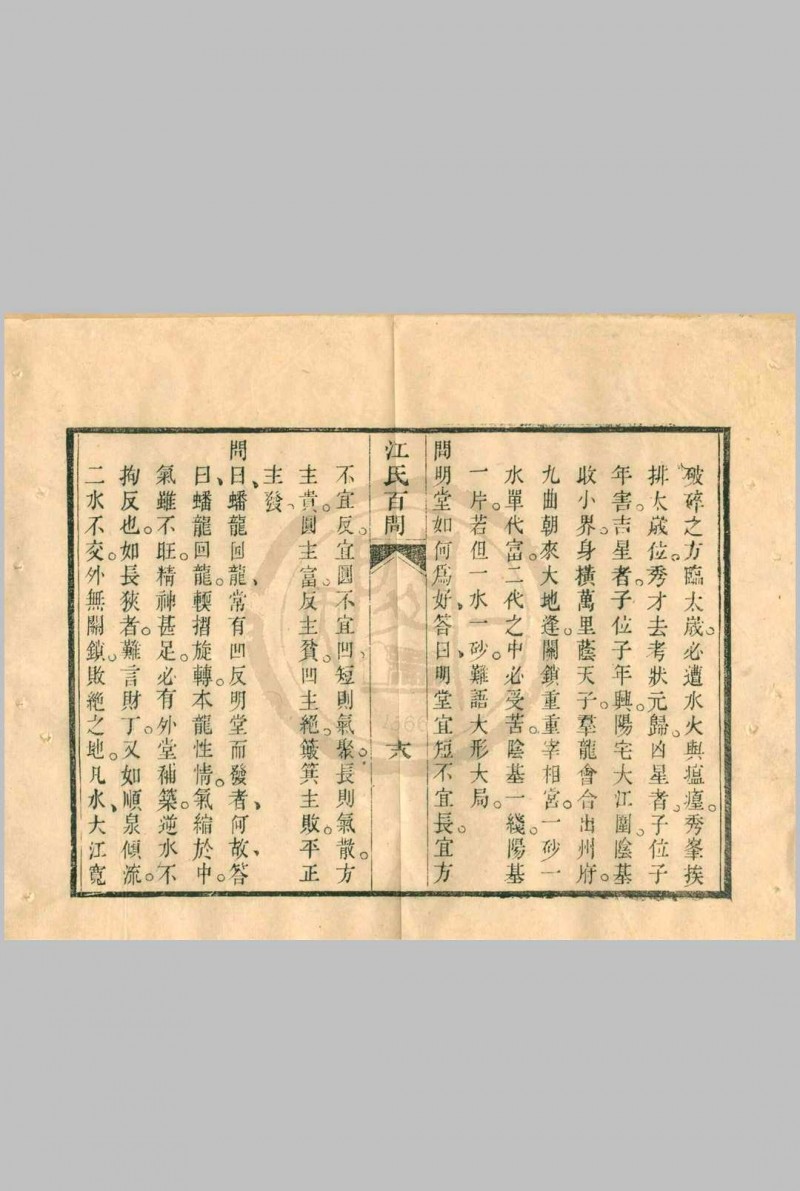 破碎之方臨太歲。必遭水火與瘟㾮。秀峯挨
排太歲位。秀才去考狀元歸。凶星者。子位子
年害。吉星者。子位子年興。陽宅大江圍。陰基
收小界。身橫萬里蔭天子。羣龍會合出州府。
九曲朝來大地逢。關鎖重重宰相宮。一砂一
水單代富。二代之中必受苦。陰基一綫。陽基
一片。若但一水一砂。難語大形大局。
問明堂如何爲好、答曰、明堂宜短不宜長。宜方
江氏百問
六
不宜反。宜圓不宜凹、短則氣聚。長則氣散。方
主貴。圓主富。反主貧。凹主絕。簸箕主敗。平正
主發、
問曰、蟠龍回龍、常有凹反明堂而發者、何故、答
曰、蟠龍回龍。輭摺旋轉。本龍性情。氣縮於中。
氣雖不旺。精神甚足。必有外堂補築。逆水不
拘反也。如長狹者。難言財丁。又如順泉傾流。
二水不交。外無關鎖。敗絕之地。凡水、大江寬